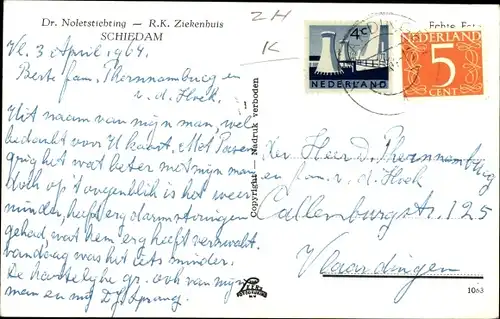 Dr. Noletstichting — R.K. Ziekenhuis
SCHIEDAM
ZH
K
Vl. 3 April 1964.
Beste fam. Thornnamburg en
v. d. Hoek.
Uit naam van mijn man, wel
bedankt voor U kaart. Met Pasen
ging het wat beter met mijn man
doch op 't oogenblik is het weer
minder, heeft erg darmstoringen
gehad, wat hem erg heeft verzwakt.
vandaag was het iets minder.
De hartelijke gr. ook van mijn
man en mij
Copyright — Nadruk verboden
4c
NEDERLAND
NEDERLAND
5
CENT
Echte
Heer D. Thornnamburg
en fam. v. d. Hoek
Callenburgstr. 125
Vlaardingen
1063